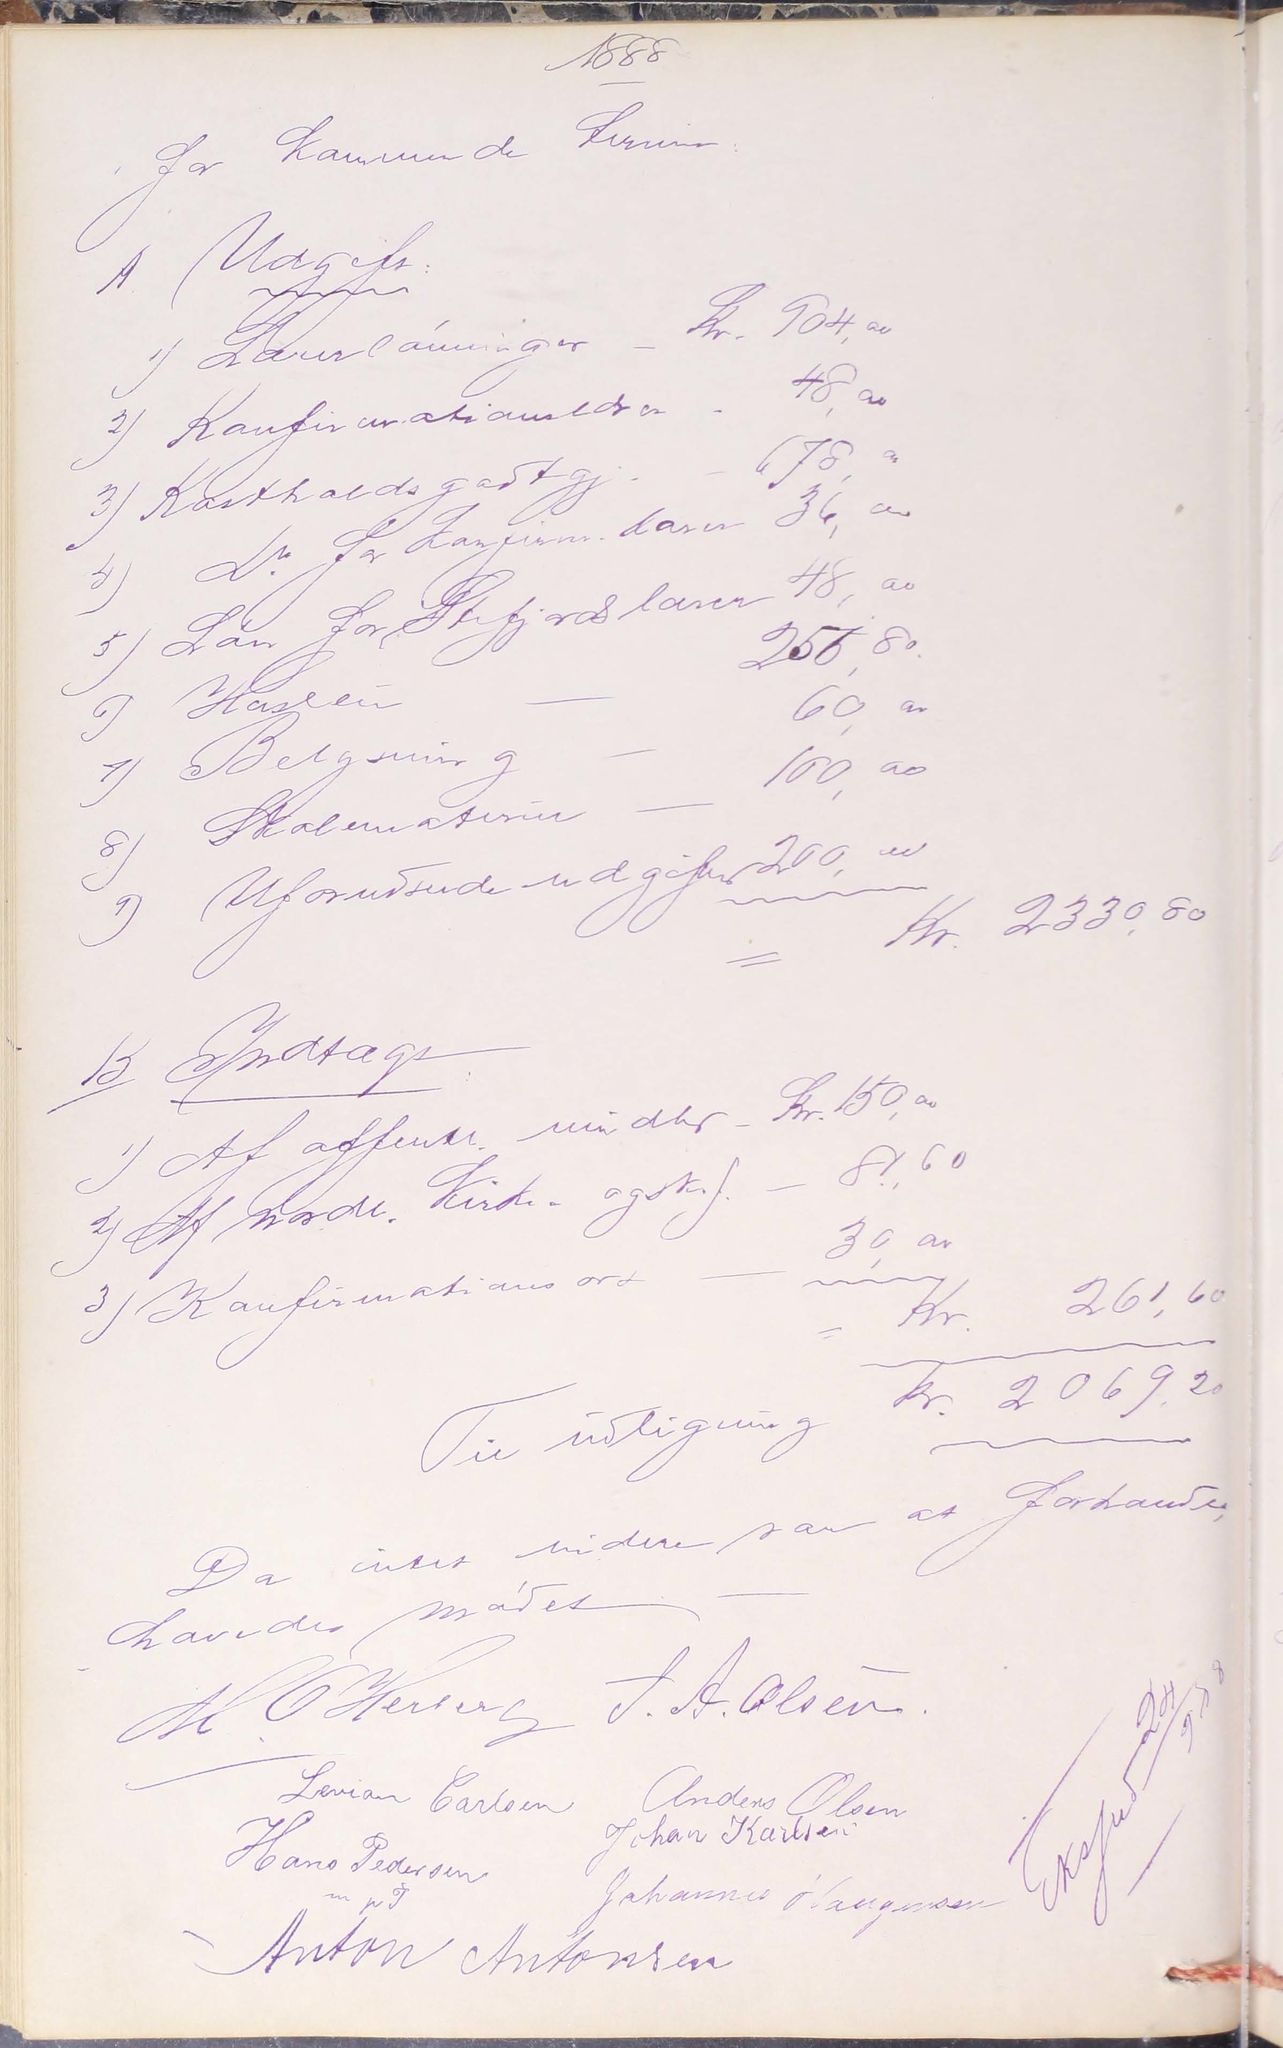 1888
for kommende termin:
A Udgift:
1) Lærerlønninger – Kr. 904,00
2) Konfirmationsldr – 48,00
3) Kostholdsgodtgj. – 678,00
4) Do for konfirm. lærer 36,00
5) Løn for lærer 48,00
6) Husleie – 256,80
7) Belysning – 60,00
8) Skolemateriel – 100,00
9) Uforudseede udgifter 200,00
= Kr. 2330,80
B Indtægt:
1) Af offentl. midler – Kr. 150,00
2) Af nordl. kirke- ogskf. – 81,60
3) Konfirmationsort – 30,00
= Kr. 261,60
Til udligning Kr. 2069,20
Da intet videre var at forhandle,
hævedes mødet –
M. O Herberg J. A. Olsen.
Levian Carlsen Anders Olsen
Hans Pedersen Johan Karlsen
m p T Johannes
Anton Antonsen
Eksped 24/9 88